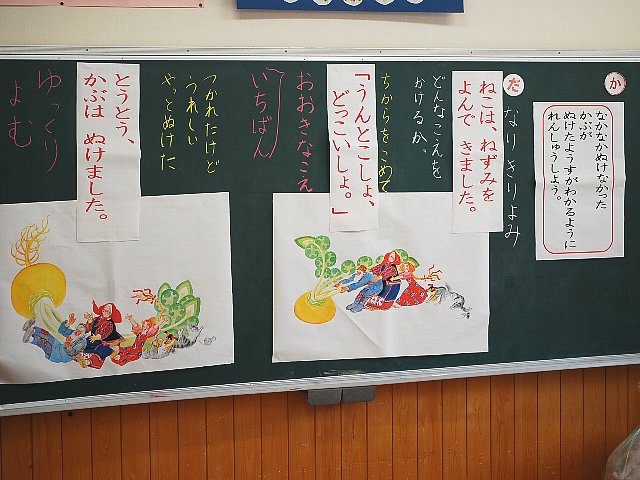 か
なかなかぬけなかった
かぶが
ぬけたようすがわかるように
れんしゅうしよう。
だ
なりきりよみ
ねこは、ねずみを
よんで きました。
どんなこえを
かけるか、
ちからをこめて
「うんとこしょ、
どっこいしょ。」
おおきなこえ
いちばん
つかれたけど
うれしい
やっとぬけた
とうとう、
かぶは ぬけました。
ゆっくり
よむ